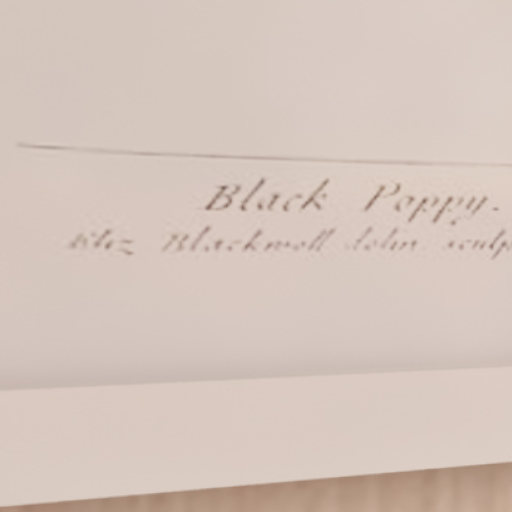 Black Poppy.
Eliz Blackwell delin. sculp